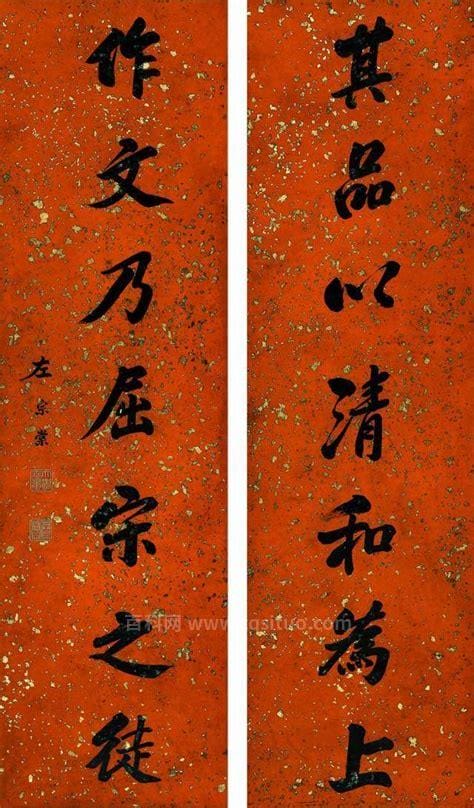 其品以清和為上
作文乃屈宋之徒
左宗棠
百科网 www.zqsituo.com